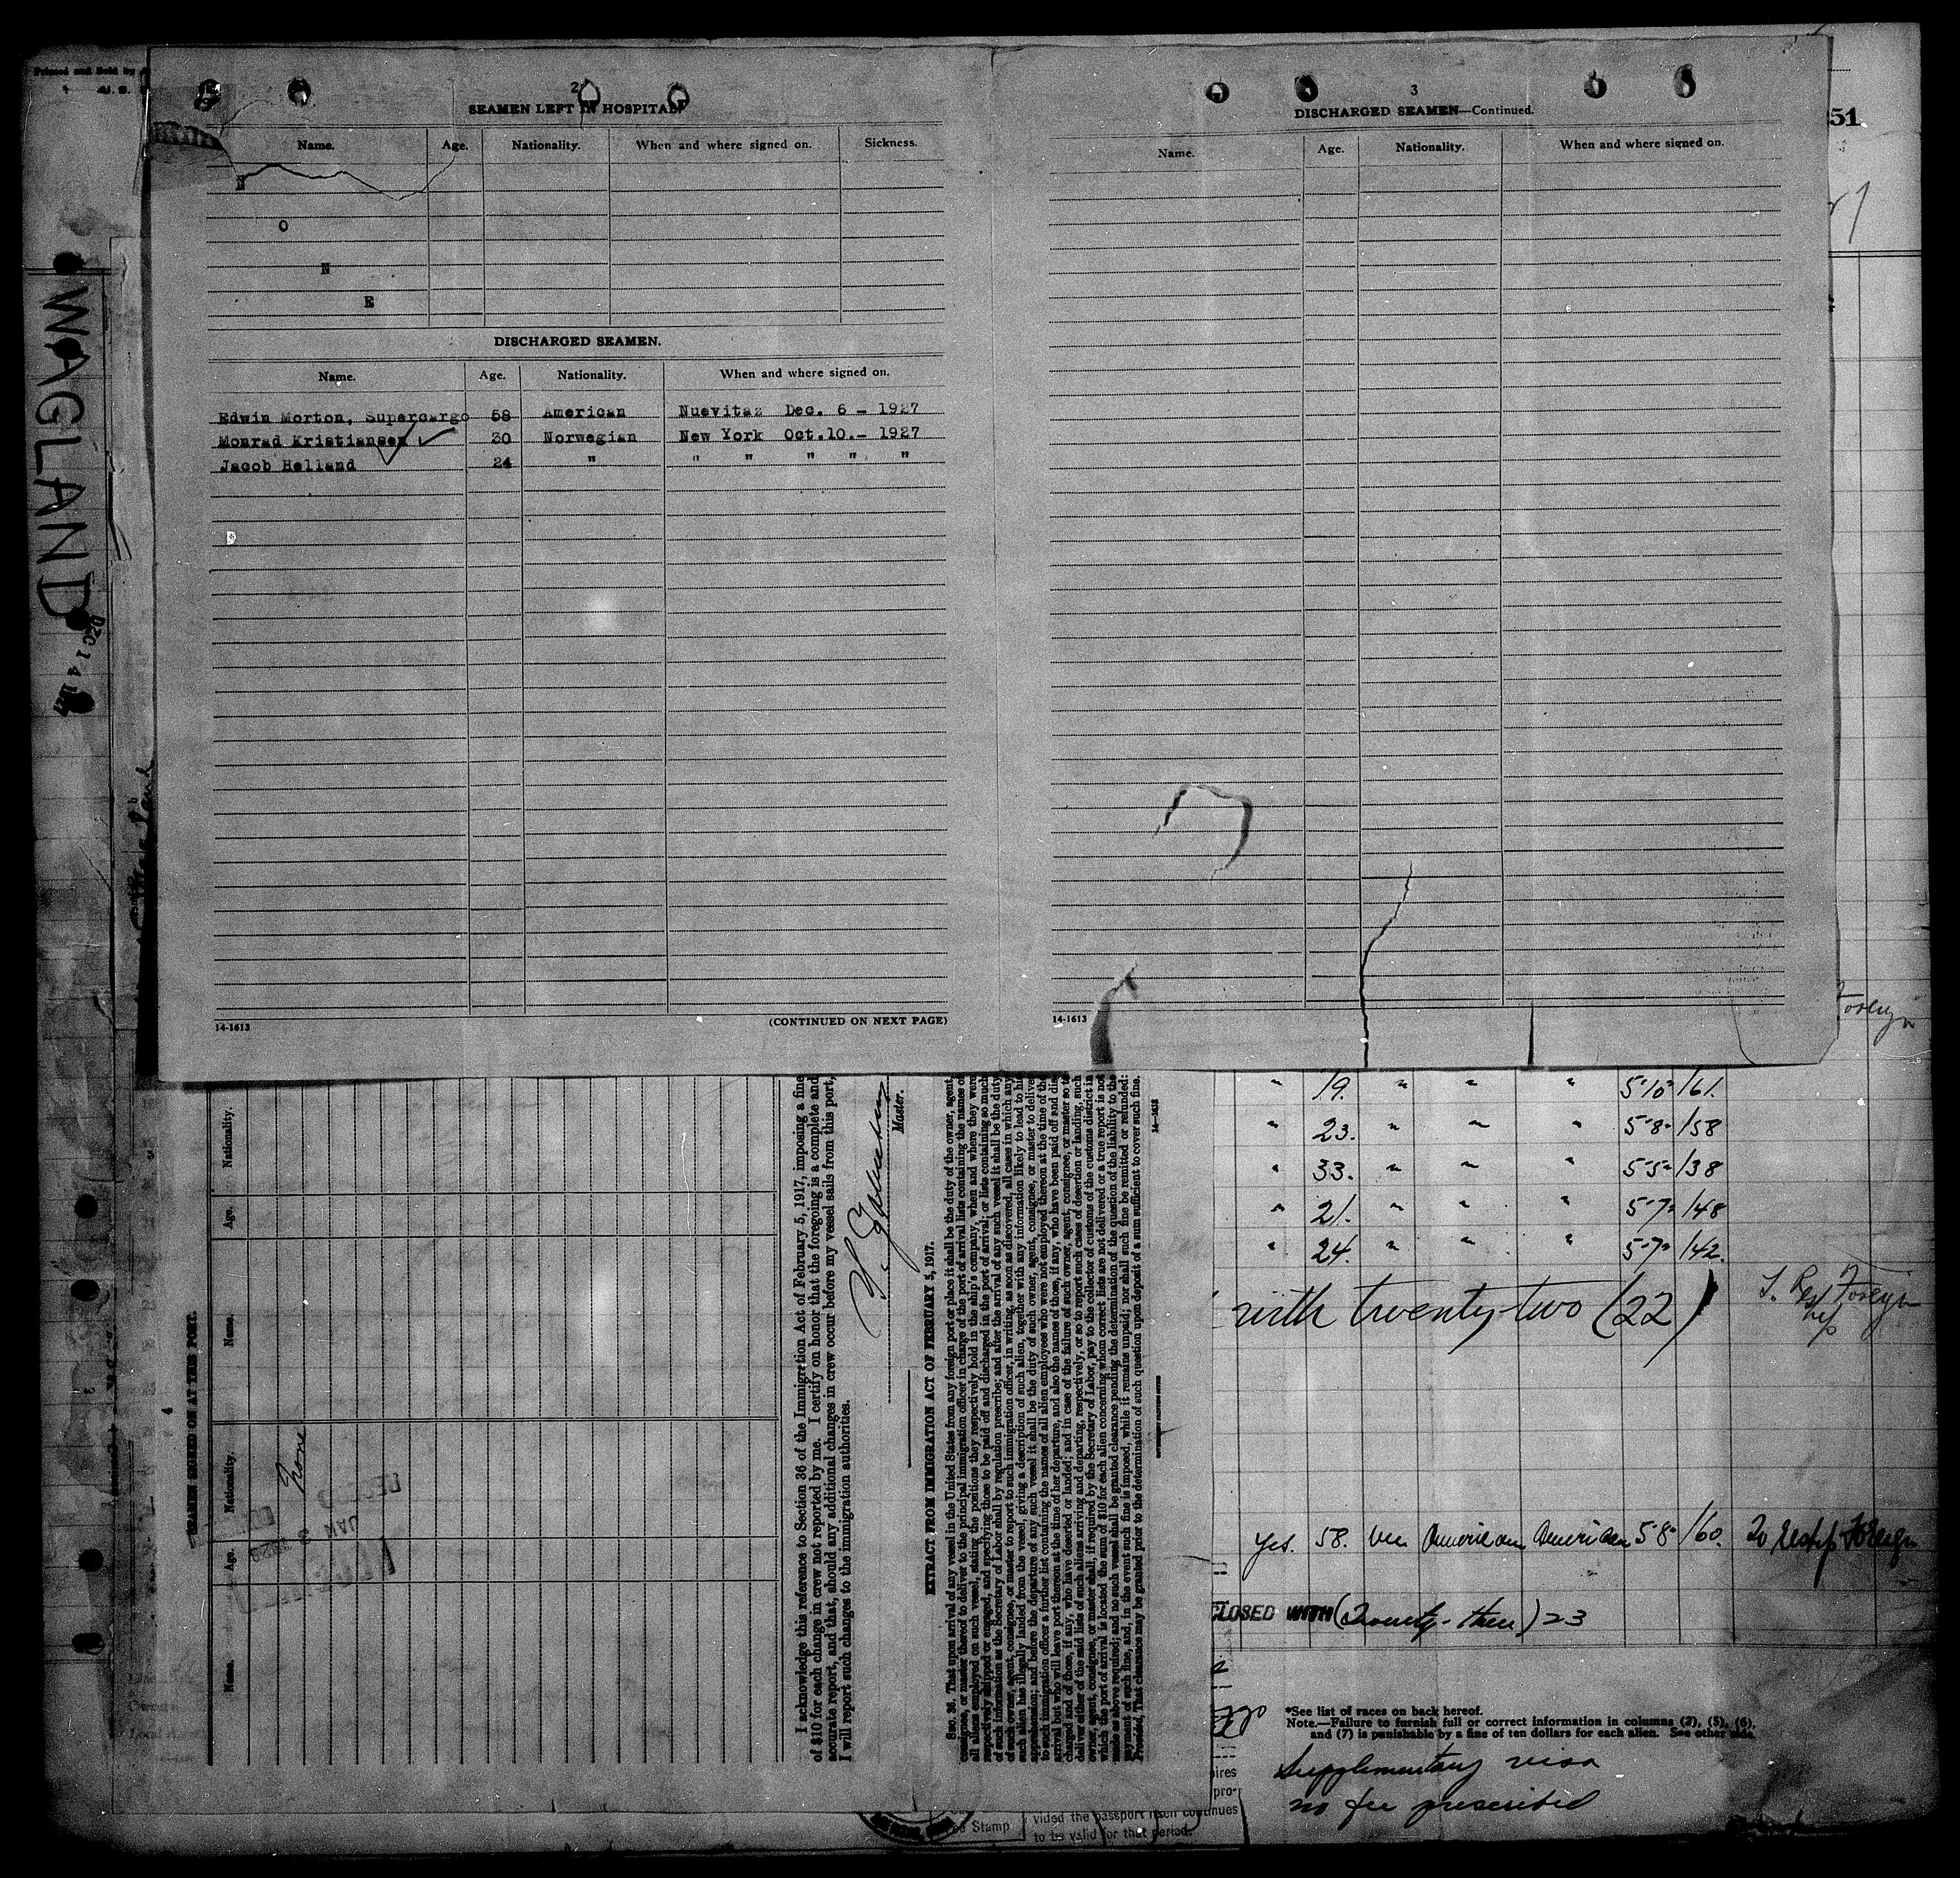 Printed and Sold by
U. S.
2
SEAMEN LEFT IN HOSPITAL.
Name. Age. Nationality. When and where signed on. Sickness.
N
O
N
E
DISCHARGED SEAMEN.
Name. Age. Nationality. When and where signed on.
Edwin Morton, Supercargo 58 American Nuevitaz Dec. 6 - 1927
Monrad Kristiansen 30 Norwegian New York Oct.10.- 1927
Jacob Helland 24 " " " " " "
14-1613 (CONTINUED ON NEXT PAGE)
3
DISCHARGED SEAMEN—Continued.
Name. Age. Nationality. When and where signed on.
14-1613
51
WAGLAND
DEC 14 1927
Foreign
" 19. " " " 5'10" 161.
" 23. " " " 5'8" 158
" 33. " " " 5'5" 138
" 21. " " " 5'7" 148
" 24. " " " 5'7" 142.
with twenty-two (22)
Foreign
Yes. 58. American American 5'8" 160. To Foreign
CLOSED WITH (Twenty-three) 23
*See list of races on back hereof.
Note.—Failure to furnish full or correct information in columns (2), (5), (6),
and (7) is punishable by a fine of ten dollars for each alien. See other side.
Supplementary visa
no fee prescribed
Stamp
vided the passport itself continues
to be valid for that period.
4
SEAMEN SIGNED ON AT THIS PORT.
Name. Age. Nationality. Name. Age. Nationality.
None
I acknowledge this reference to Section 36 of the Immigration Act of February 5, 1917, imposing a fine
of $10 for each change in crew not reported by me. I certify on honor that the foregoing is a complete and
accurate report, and that, should any additional changes in crew occur before my vessel sails from this port,
I will report such changes to the immigration authorities.
Master.
EXTRACT FROM IMMIGRATION ACT OF FEBRUARY 5, 1917.
SEC. 36. That upon arrival of any vessel in the United States from any foreign port or place it shall be the duty of the owner, agent,
consignee, or master thereof to deliver to the principal immigration officer in charge of the port of arrival lists containing the names of
all aliens employed on such vessel, stating the positions they respectively hold in the ship's company, when and where they were
respectively shipped or engaged, and specifying those to be paid off and discharged in the port of arrival; or lists containing so much
of such information as the Secretary of Labor shall by regulation prescribe; and after the arrival of any such vessel it shall be the duty
of such owner, agent, consignee, or master to report to such immigration officer, in writing, as soon as discovered, all cases in which any
such alien has illegally landed from the vessel, giving a description of such alien, together with any information likely to lead to his
apprehension; and before the departure of any such vessel it shall be the duty of such owner, agent, consignee, or master to deliver
to such immigration officer a further list containing the names of all alien employees who were not employed thereon at the time of the
arrival but who will leave port thereon at the time of her departure, and also the names of those, if any, who have been paid off and dis
charged and of those, if any, who have deserted or landed; and in case of the failure of such owner, agent, consignee, or master so to
deliver either of the said lists of such aliens arriving and departing, respectively, or so to report such cases of desertion or landing, such
owner, agent, consignee, or master shall, if required by the Secretary of Labor, pay to the collector of customs of the customs district in
which the port of arrival is located the sum of $10 for each alien concerning whom correct lists are not delivered or a true report is not
made as above required; and no such vessel shall be granted clearance pending the determination of the question of the liability to the
payment of such fine, and, in the event such fine is imposed, while it remains unpaid; nor shall such fine be remitted or refunded:
Provided, That clearance may be granted prior to the determination of such question upon deposit of a sum sufficient to cover such fine.